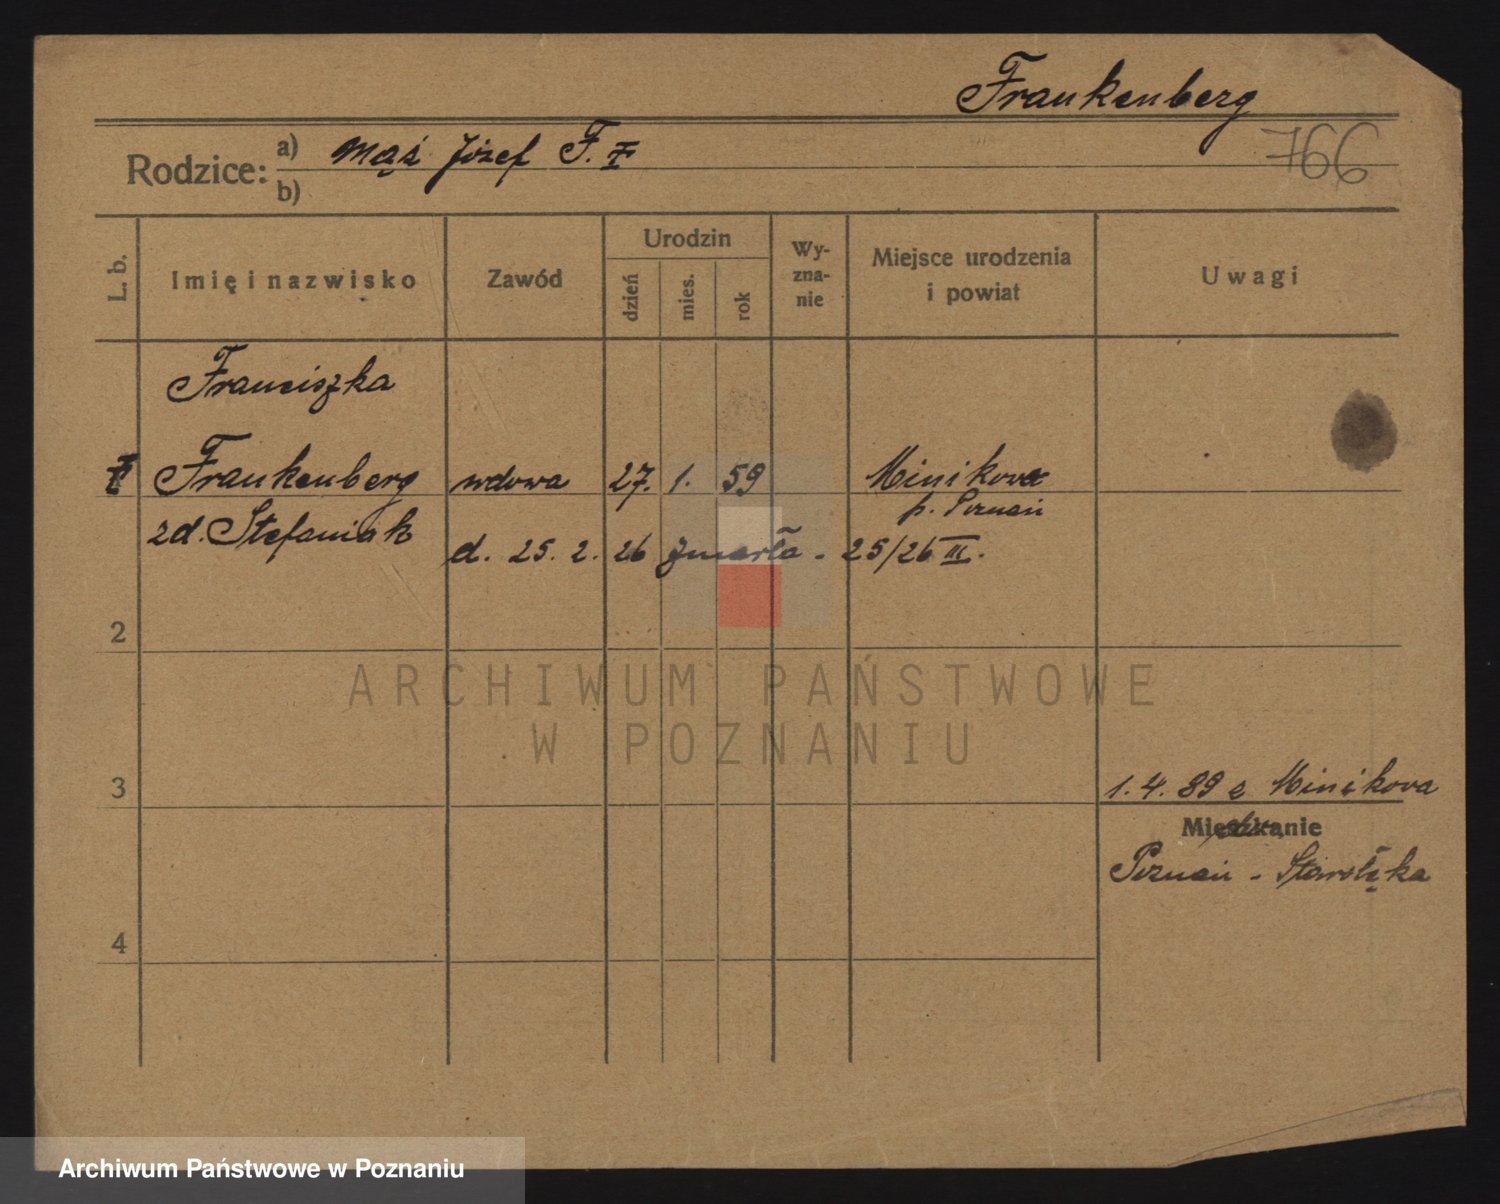 Frankenberg
766
Rodzice: a) mąż Józef F. †
b)
L. b. Imię i nazwisko Zawód Urodzin dzień mies. rok Wy-zna-nie Miejsce urodzenia i powiat Uwagi
Franciszka
† Frankenberg wdowa 27. 1. 59 Minikowa
p. Poznań
zd. Stefaniak
d. 25. 2. 26 zmarła - 25/26 III.
2
ARCHIWUM PAŃSTWOWE
W POZNANIU
3
1. 4. 89 z Minikova
Mieszkanie
Poznań - Starołęka
4
Archiwum Państwowe w Poznaniu